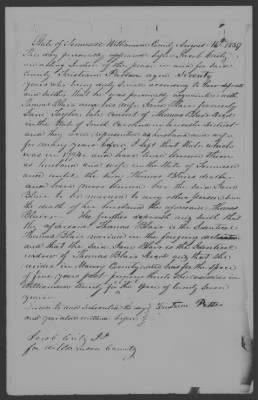 State of Tennessee Williamson County August 16th 1839
This day personally appeared before Jacob
an acting Justice of the peace in and for said
county Tristram Patton aged Seventy
years who being duly sworn according to law deposeth
and saith, that he was personally acquainted with
Thomas Blair and his wife Jane Blair formerly
Jane the consort of Thomas Blair
State of South Carolina in
and they were reputed as husband and wife
for many years before I left that State which
was in 1794 and have known them
as husband and wife in the State of Tennessee
and until the said Thomas Blairs death
and have never known her the said Jane
Blair to be married to any other person since
the death of her husband the aforesaid Thomas
Blair. He further deposeth and saith that
the aforesaid Thomas Blair is the identical
Thomas Blair named in the foregoing
and that the said Jane Blair is the identical
widow of Thomas Blair and that she
resides in Maury County and has for the space
of four years past previous to this the resided in
Williamson County for the space of twenty seven
years
Sworn to and subscribed the day
and year above written before
Tristram Patton
Jacob
for Williamson County